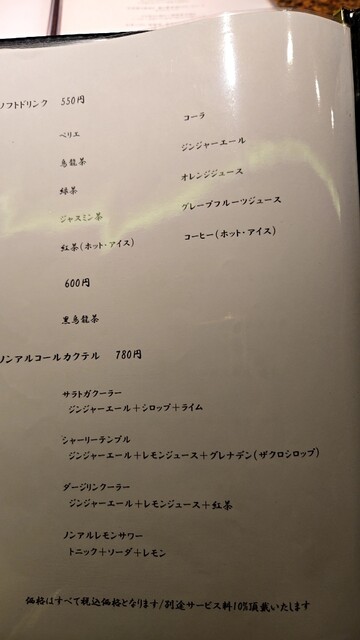 ソフトドリンク 550円
ペリエ
コーラ
烏龍茶
ジンジャーエール
緑茶
オレンジジュース
ジャスミン茶
グレープフルーツジュース
紅茶(ホット・アイス)
コーヒー(ホット・アイス)
600円
黒烏龍茶
ノンアルコールカクテル 780円
サラトガクーラー
ジンジャーエール+シロップ+ライム
シャーリーテンプル
ジンジャーエール+レモンジュース+グレナデン(ザクロシロップ)
ダージリンクーラー
ジンジャーエール+レモンジュース+紅茶
ノンアルレモンサワー
トニック+ソーダ+レモン
価格はすべて税込価格となります/別途サービス料10%頂戴いたします